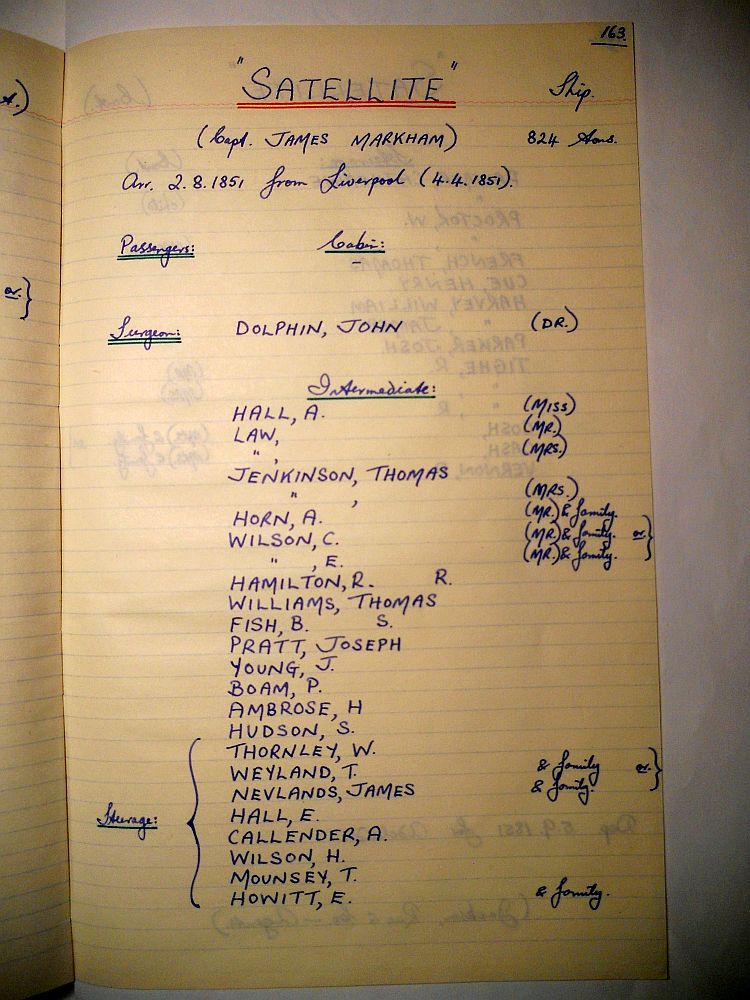 163.
"SATELLITE" Ship.
(Capt. JAMES MARKHAM) 824 tons.
Arr. 2.8.1851 from Liverpool (4.4.1851).
Passengers: Cabin:
Surgeon: DOLPHIN, JOHN (DR.)
Intermediate:
HALL, A. (MISS)
LAW, (MR.)
" , (MRS.)
JENKINSON, THOMAS
" , (MRS.)
HORN, A. (MR.) & family.
WILSON, C. (MR.) & family. or }
" , E. (MR.) & family.
HAMILTON, R. R.
WILLIAMS, THOMAS
FISH, B. S.
PRATT, JOSEPH
YOUNG, J.
BOAM, P.
AMBROSE, H
HUDSON, S.
THORNLEY, W.
WEYLAND, T. & family or }
NEVLANDS, JAMES & family.
Steerage: {
HALL, E.
CALLENDER, A.
WILSON, H.
MOUNSEY, T.
HOWITT, E. & family.
or }